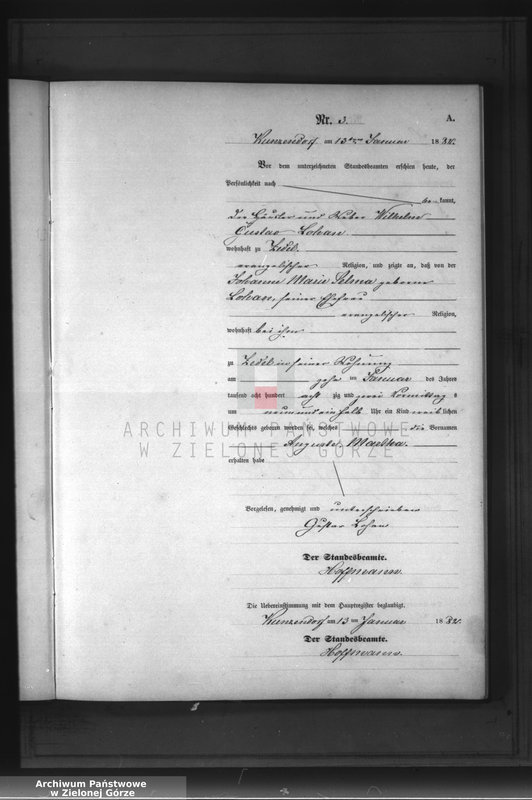 Nr. 3.
A.
Kunzendorf am 13ten Januar 1882.
Vor dem unterzeichneten Standesbeamten erschien heute, der
Persönlichkeit nach
be kannt,
der Häusler und Weber Wilhelm
Gustav Lohan
wohnhaft zu Zedel
evangelischer Religion, und zeigte an, daß von der
Johanne Marie Selma geborene
Lohan, seiner Ehefrau
evangelischer Religion,
wohnhaft bei ihm
zu Zedel in seiner Wohnung
am zehn ten Januar des Jahres
tausend acht hundert acht zig und zwei Vormittag s
um neun und ein halb Uhr ein Kind weib lichen
Geschlechts geboren worden sei, welches die Vornamen
Auguste Martha
erhalten habe
Vorgelesen, genehmigt und unterschrieben
Gustav Lohan
Der Standesbeamte.
Hoffmann.
Die Uebereinstimmung mit dem Hauptregister beglaubigt.
Kunzendorf am 13 ten Januar 1882.
Der Standesbeamte.
Hoffmann.
ARCHIWUM PAŃSTWOWE
W ZIELONEJ GÓRZE
Archiwum Państwowe
w Zielonej Górze